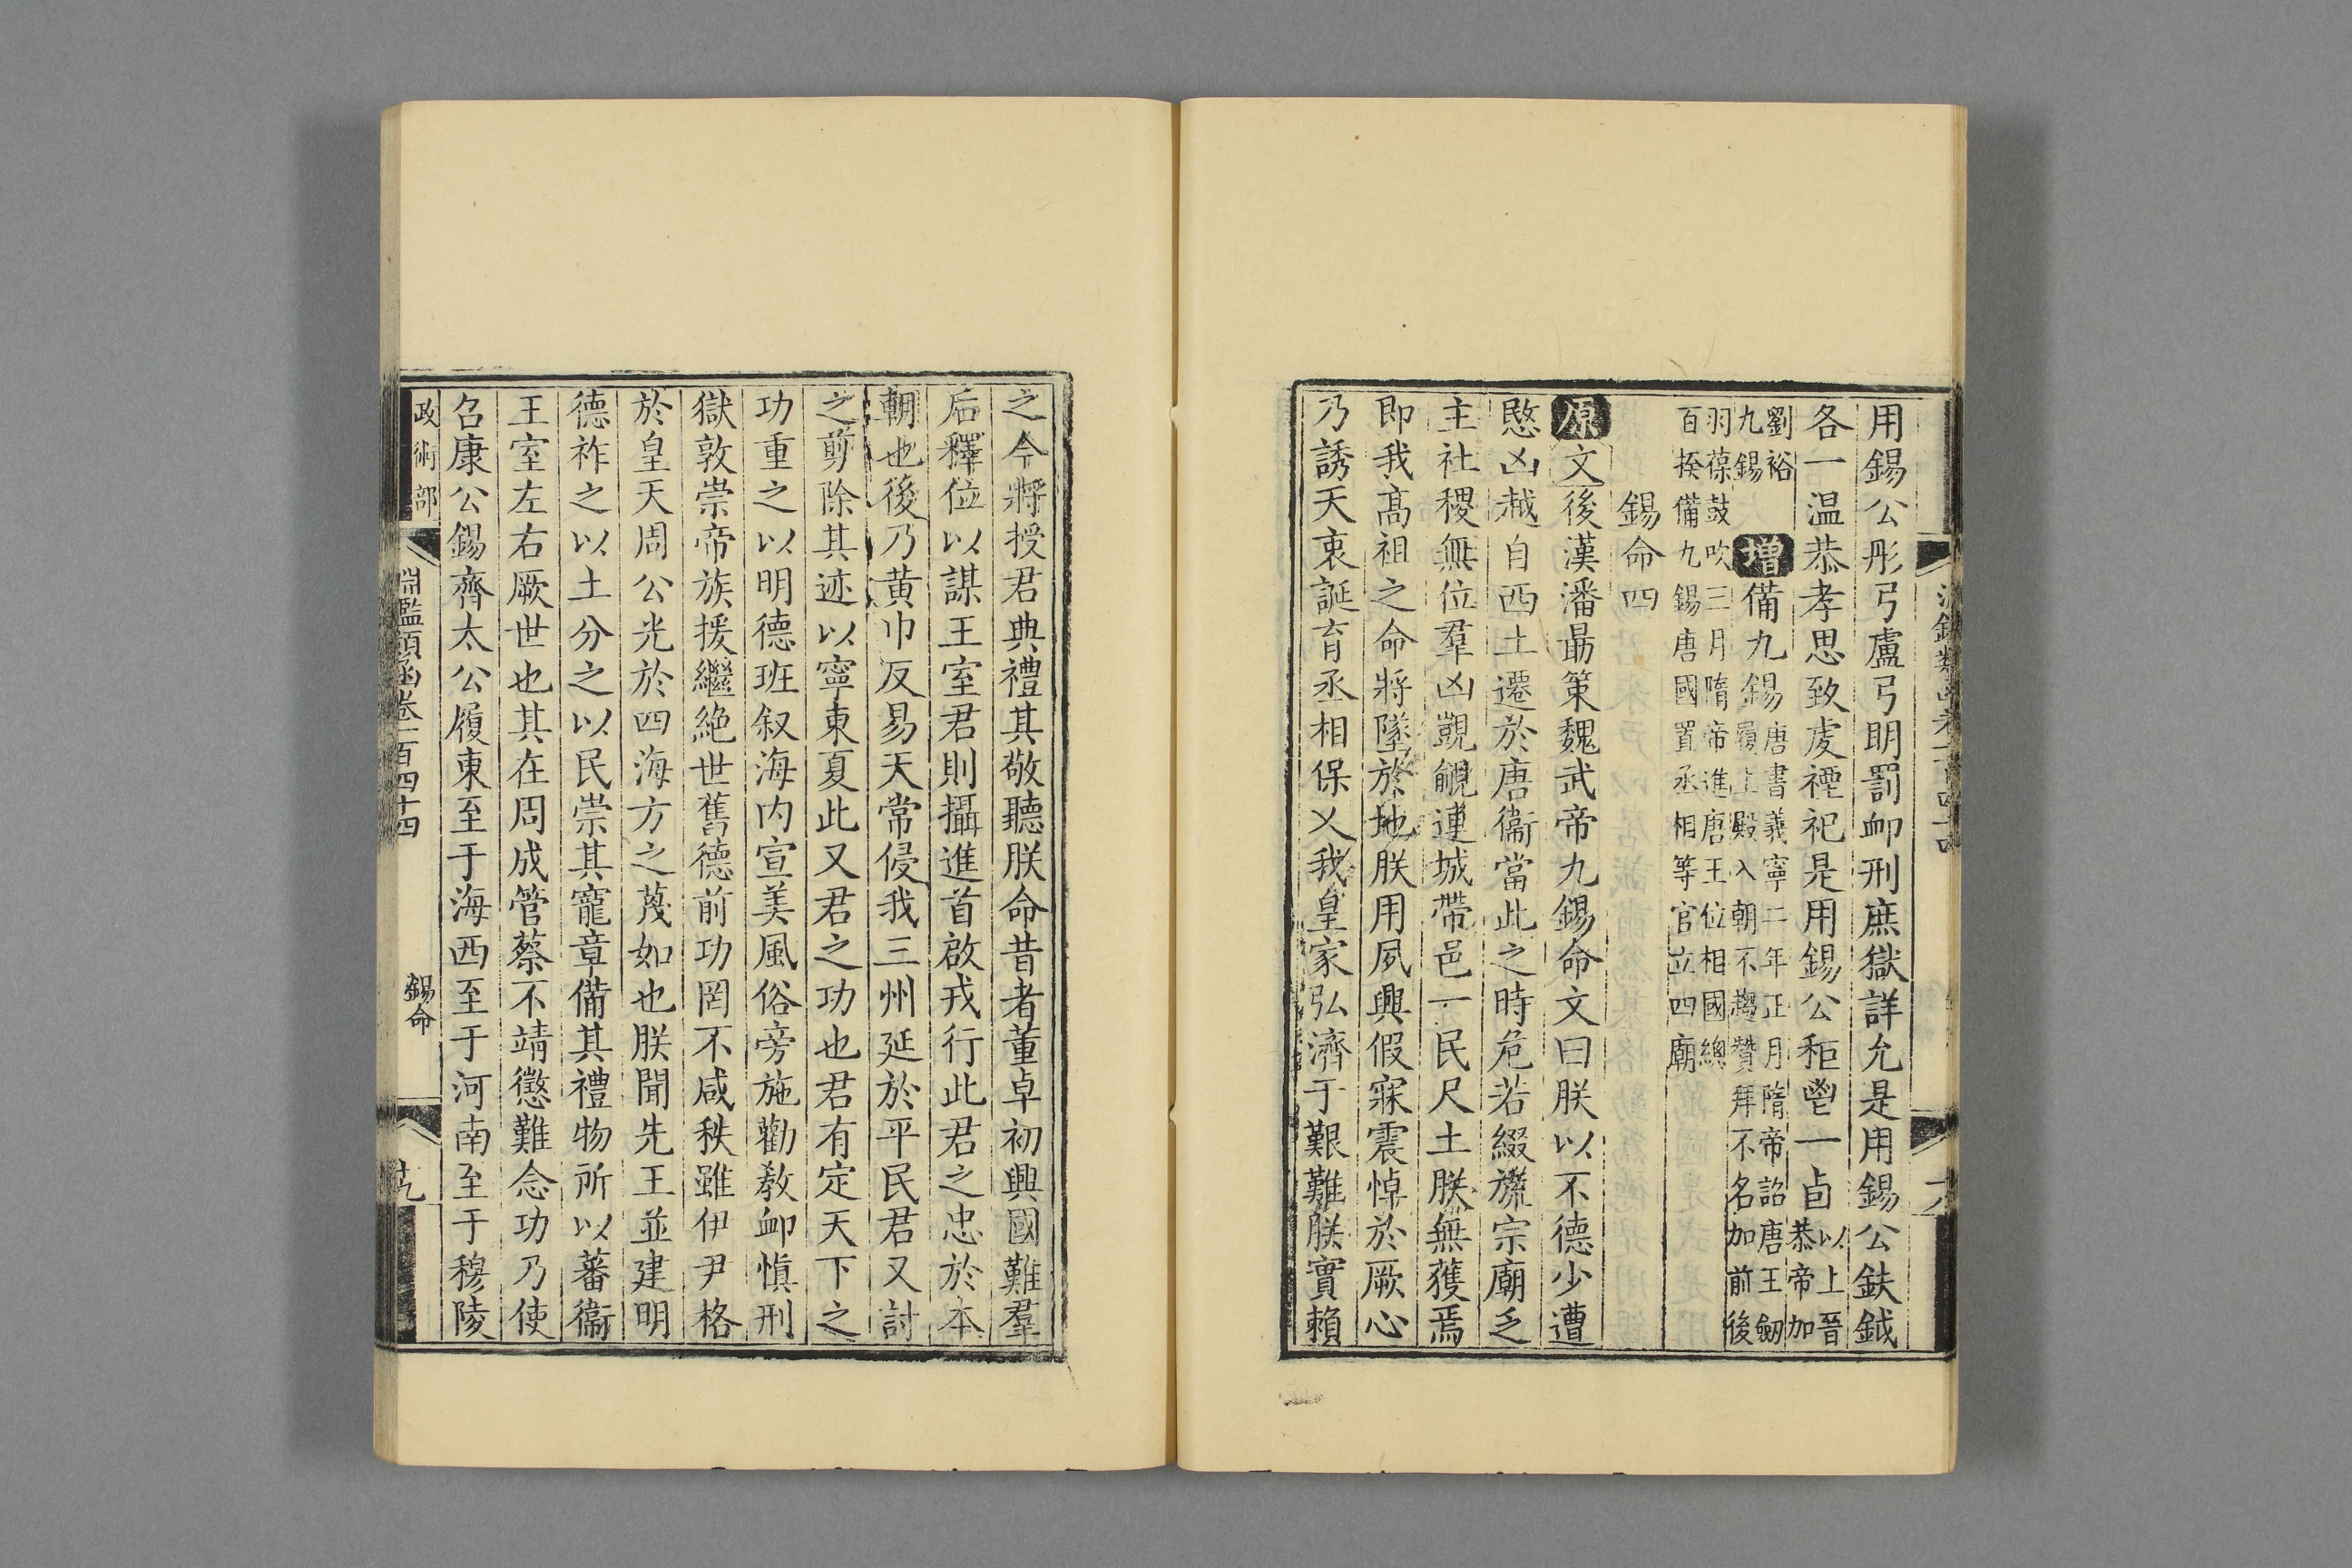 用錫公彤弓盧弓明罰卹刑庶獄詳允是用錫公鈇鉞
各一温恭孝思致虔禋祀是用錫公秬鬯一卣以上晉恭帝加
劉裕九錫
增備九錫唐書義寧二年正月隋帝詔唐王劒履上殿入朝不趨贊拜不名加前後
羽葆鼓吹三月隋帝進唐王位相國總百揆備九錫唐國置丞相等官立四廟
錫命四
原文後漢潘勗策魏武帝九錫命文曰朕以不德少遭
愍凶越自西土遷於唐衞當此之時危若綴旒宗廟乏
主社稷無位羣凶覬覦連城帶邑一民尺土朕無獲焉
即我髙祖之命將墜於地朕用夙興假寐震悼於厥心
乃誘天衷誕育丞相保乂我皇家弘濟于艱難朕實賴
之今將授君典禮其敬聽朕命昔者董卓初興國難羣
后釋位以謀王室君則攝進首啟戎行此君之忠於本
朝也後乃黄巾反易天常侵我三州延於平民君又討
之剪除其迹以寧東夏此又君之功也君有定天下之
功重之以明德班叙海内宣美風俗旁施勸教卹慎刑
獄敦崇帝族援繼絶世舊德前功罔不咸秩雖伊尹格
於皇天周公光於四海方之蔑如也朕聞先王並建明
德祚之以土分之以民崇其寵章備其禮物所以蕃衞
王室左右厥世也其在周成管蔡不靖懲難念功乃使
召康公錫齊太公履東至于海西至于河南至于穆陵
政術部
淵鑑類函卷一百四十四
錫命